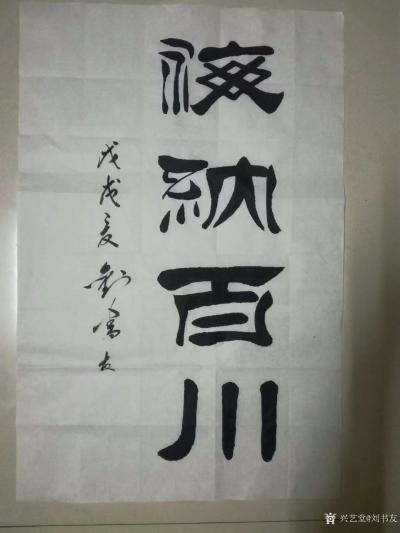 海納百川
戊戌夏劉書友
兴艺堂@刘书友